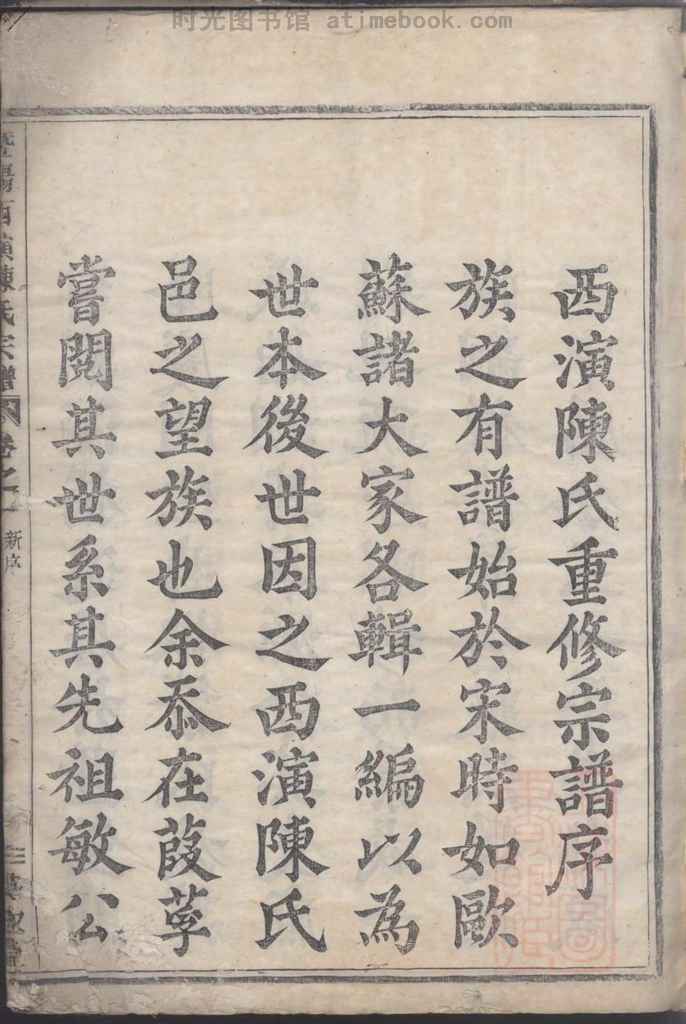 时光图书馆 atimebook.com
西演陳氏重修宗譜序
族之有譜始於宋時如歐
蘇諸大家各輯一編以為
世本後世因之西演陳氏
邑之望族也余忝在葭莩
嘗閱其世系其先祖敏公
西演陳氏宗譜
卷之一
新序